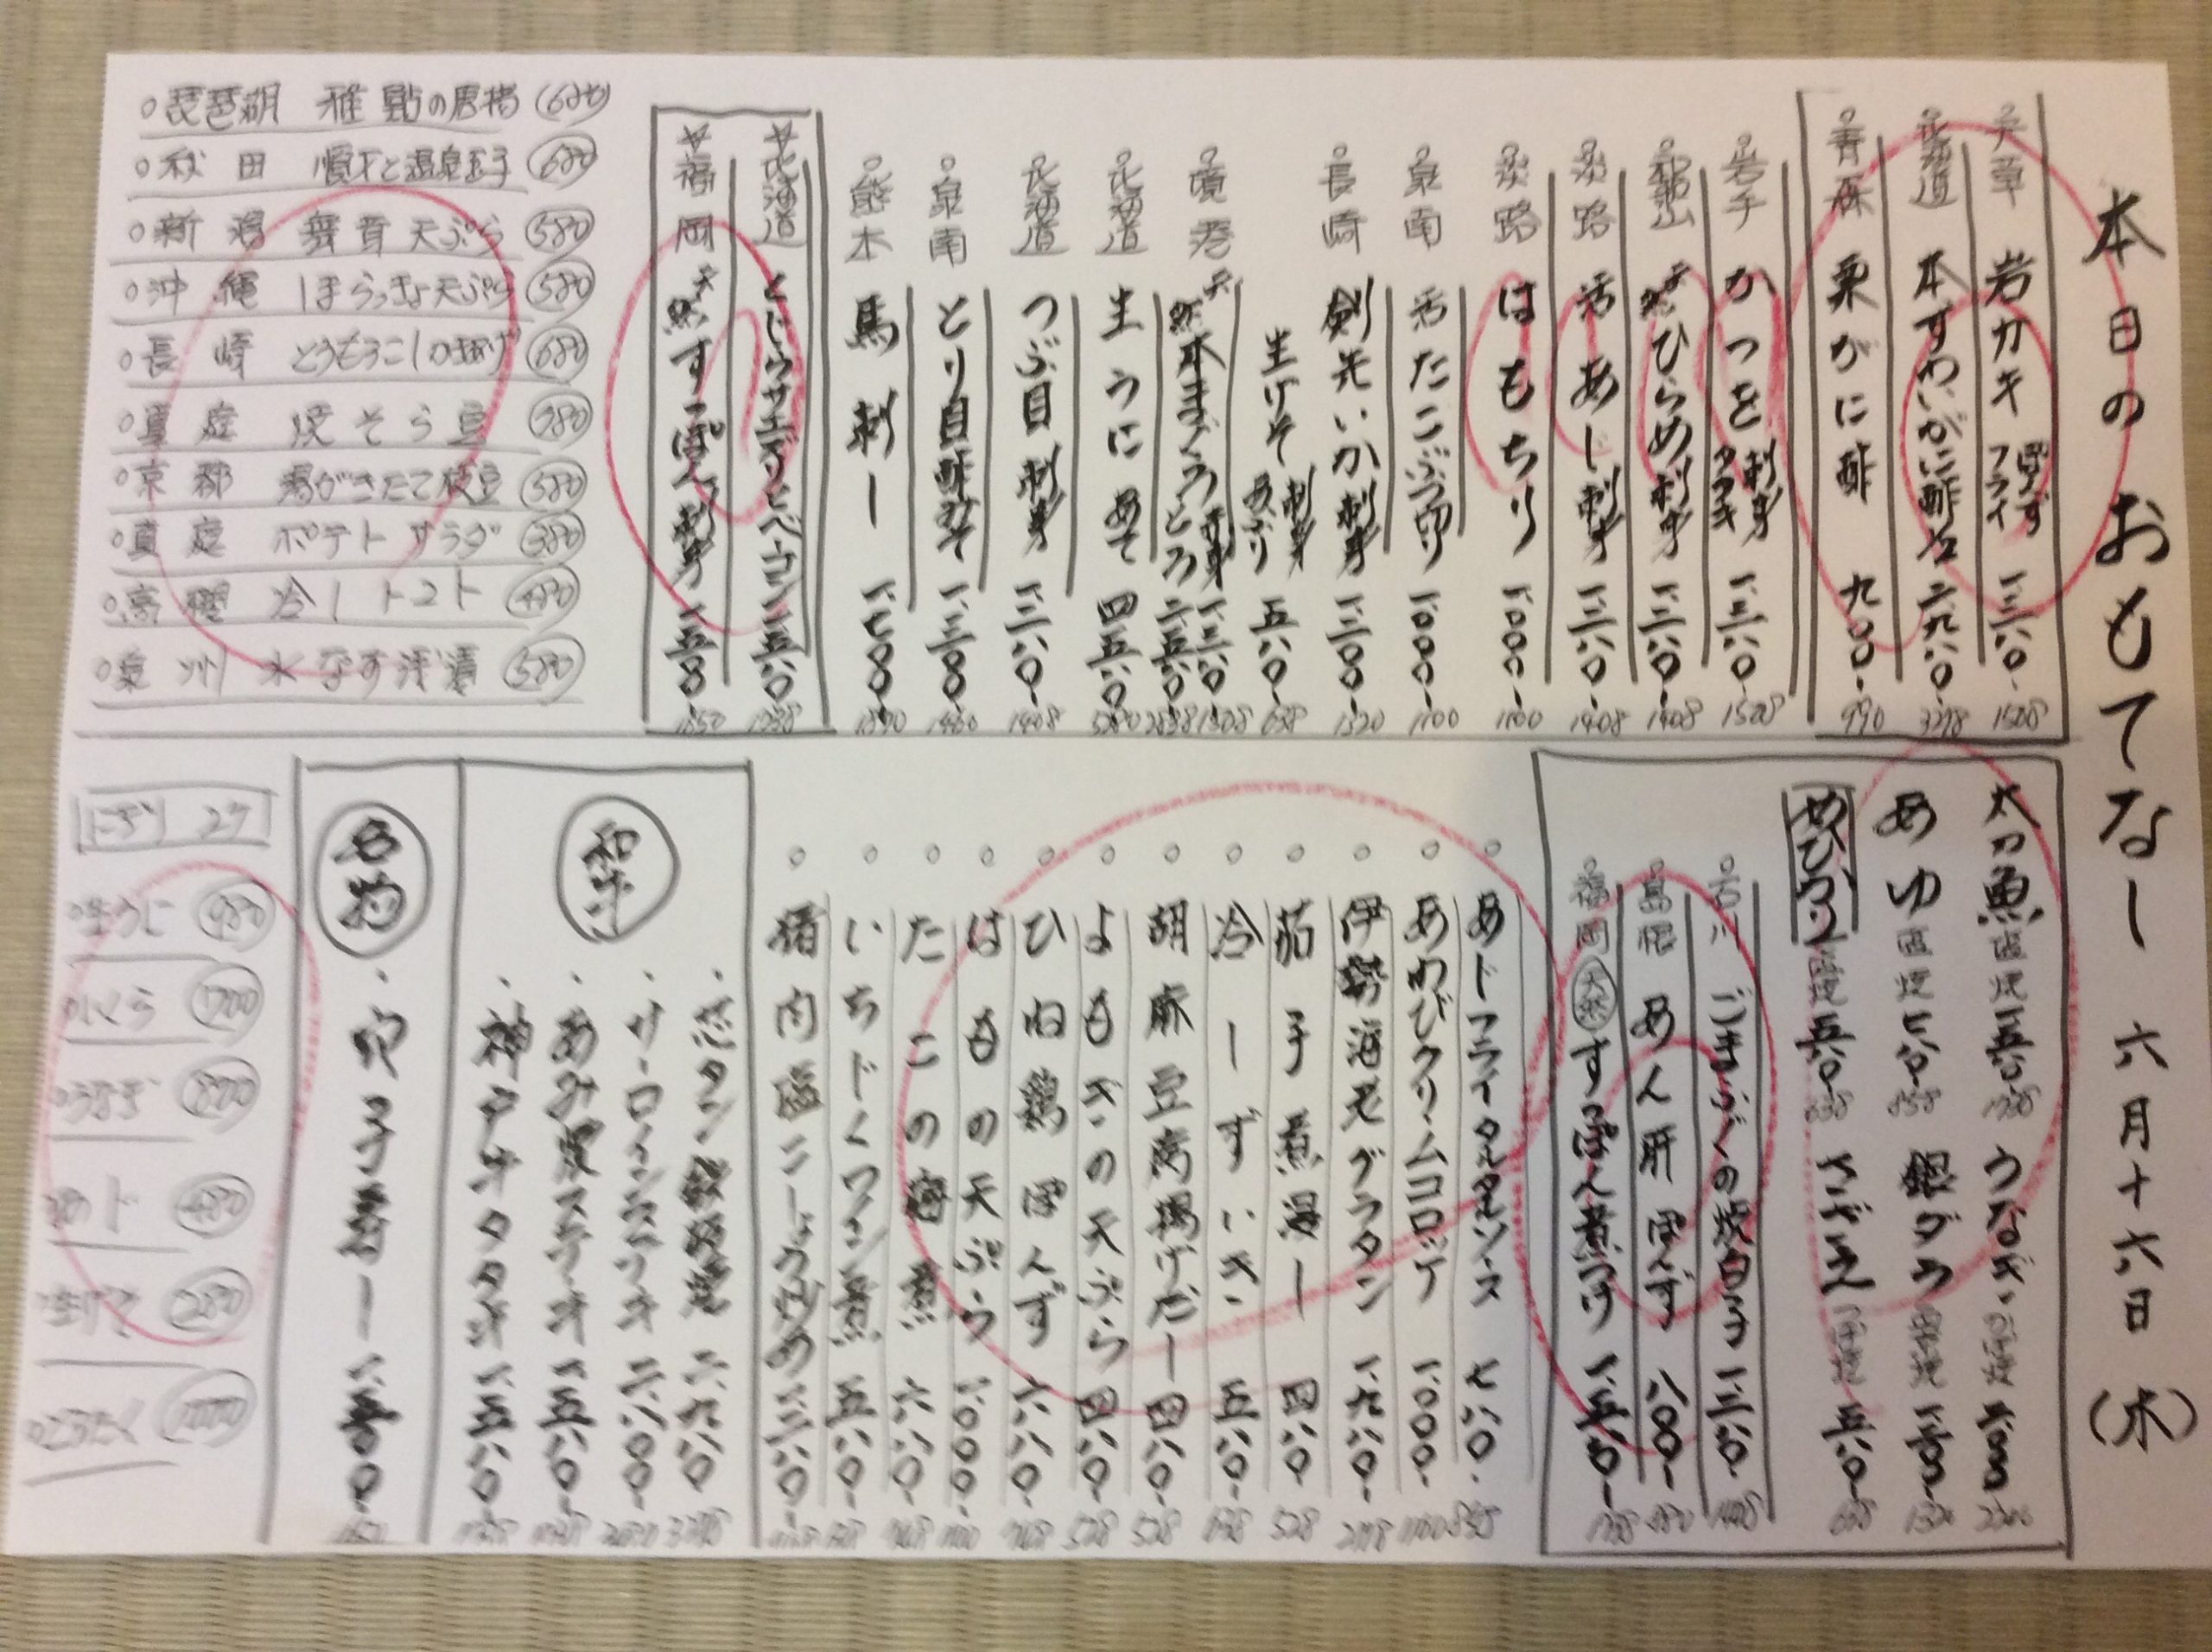 本日のおもてなし 六月十六日(水)
天草 岩カキ ぽんず フライ 一、三八〇-
1508
北海道 本ずわいがに酢 二、九八〇-
3278
青森 栗がに酢 九〇〇-
990
岩手 かつを 刺身 タタキ 一、三八〇-
1508
和歌山 天然 ひらめ 刺身 一、二八〇-
1408
淡路 活あじ 刺身 一、二八〇-
1408
淡路 はもちり 一、〇〇〇-
1100
泉南 活たこぶつ切り 一、〇〇〇-
1100
長崎 剣先いか刺身 一、二〇〇-
1320
生げそ 刺身 あぶり 五八〇-
638
境港 天然 本まぐろ
とろ
北海道 生うに あて 四、八〇〇-
5280
北海道 つぶ貝 刺身 一、二八〇-
1408
泉南 とり貝酢みそ
熊本 馬刺し 一、七〇〇-
北海道 とじらサエズリとベーコン 一、五八〇-
1738
福岡 天然 すっぽん刺身 一、五〇〇-
1650
琵琶湖 稚鮎の唐揚
秋田 順才と温泉玉子 680
新潟 舞茸天ぷら 580
沖縄 しまらっきょ天ぷら 580
長崎 とうもろこしかき揚げ 680
真庭 焼そら豆
京都 湯がきたて枝豆 580
真庭 ポテトサラダ 380
冷しトマト 480
泉州 水なす浅漬 580
太刀魚 塩焼 一、五八〇-
1738
うなぎ かば焼
あゆ 塩焼 七八〇-
858
銀ダラ 西京焼 一、二〇〇-
1320
めひかり 塩焼 五八〇-
638
さざえ つぼ焼 五八〇-
638
石川 ごまふぐの焼白子 一、二八〇-
1408
島根 あん肝ぽんず 八〇〇-
880
福岡 天然 すっぽん煮つけ 一、五八〇-
1738
あじフライタルタルソース 七八〇-
858
あわびクリームコロッケ 一、〇〇〇-
1100
伊勢海老グラタン 一、九八〇-
2178
茄子煮浸し 四八〇-
528
冷しずいき 五八〇-
638
胡麻豆腐揚げだし 四八〇-
528
よもぎの天ぷら 四八〇-
528
ひね鶏ぽんず 六八〇-
748
はもの天ぷら 一、〇〇〇-
1100
たこの煮 六八〇-
748
いちじくワイン煮 五八〇-
猪肉塩こしょう炒め
和牛
芯タン 二、九八〇-
3278
サーロインスライス
あみ焼ステーキ 一、五八〇-
1738
神戸牛タタキ 一、五八〇-
1738
名物
穴子寿し 一、五〇〇-
1650
にぎり 2ケ
生うに 980
いくら
うなぎ
あじ 480
生げそ 280